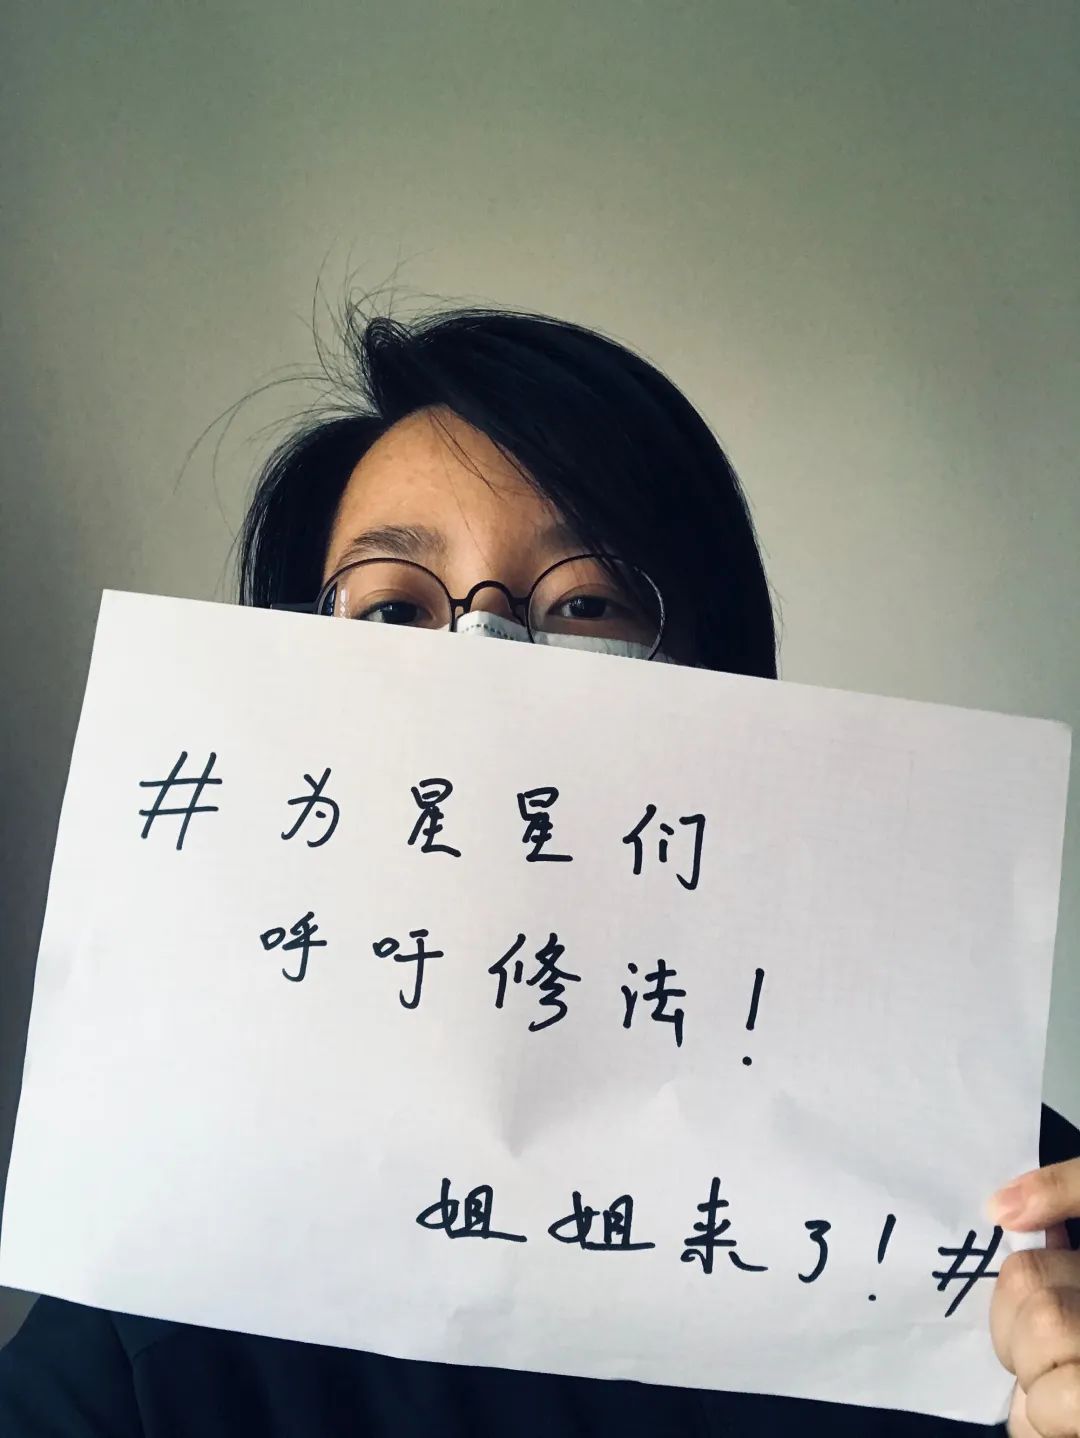 #为星星们
呼吁修法!
姐姐来了!#